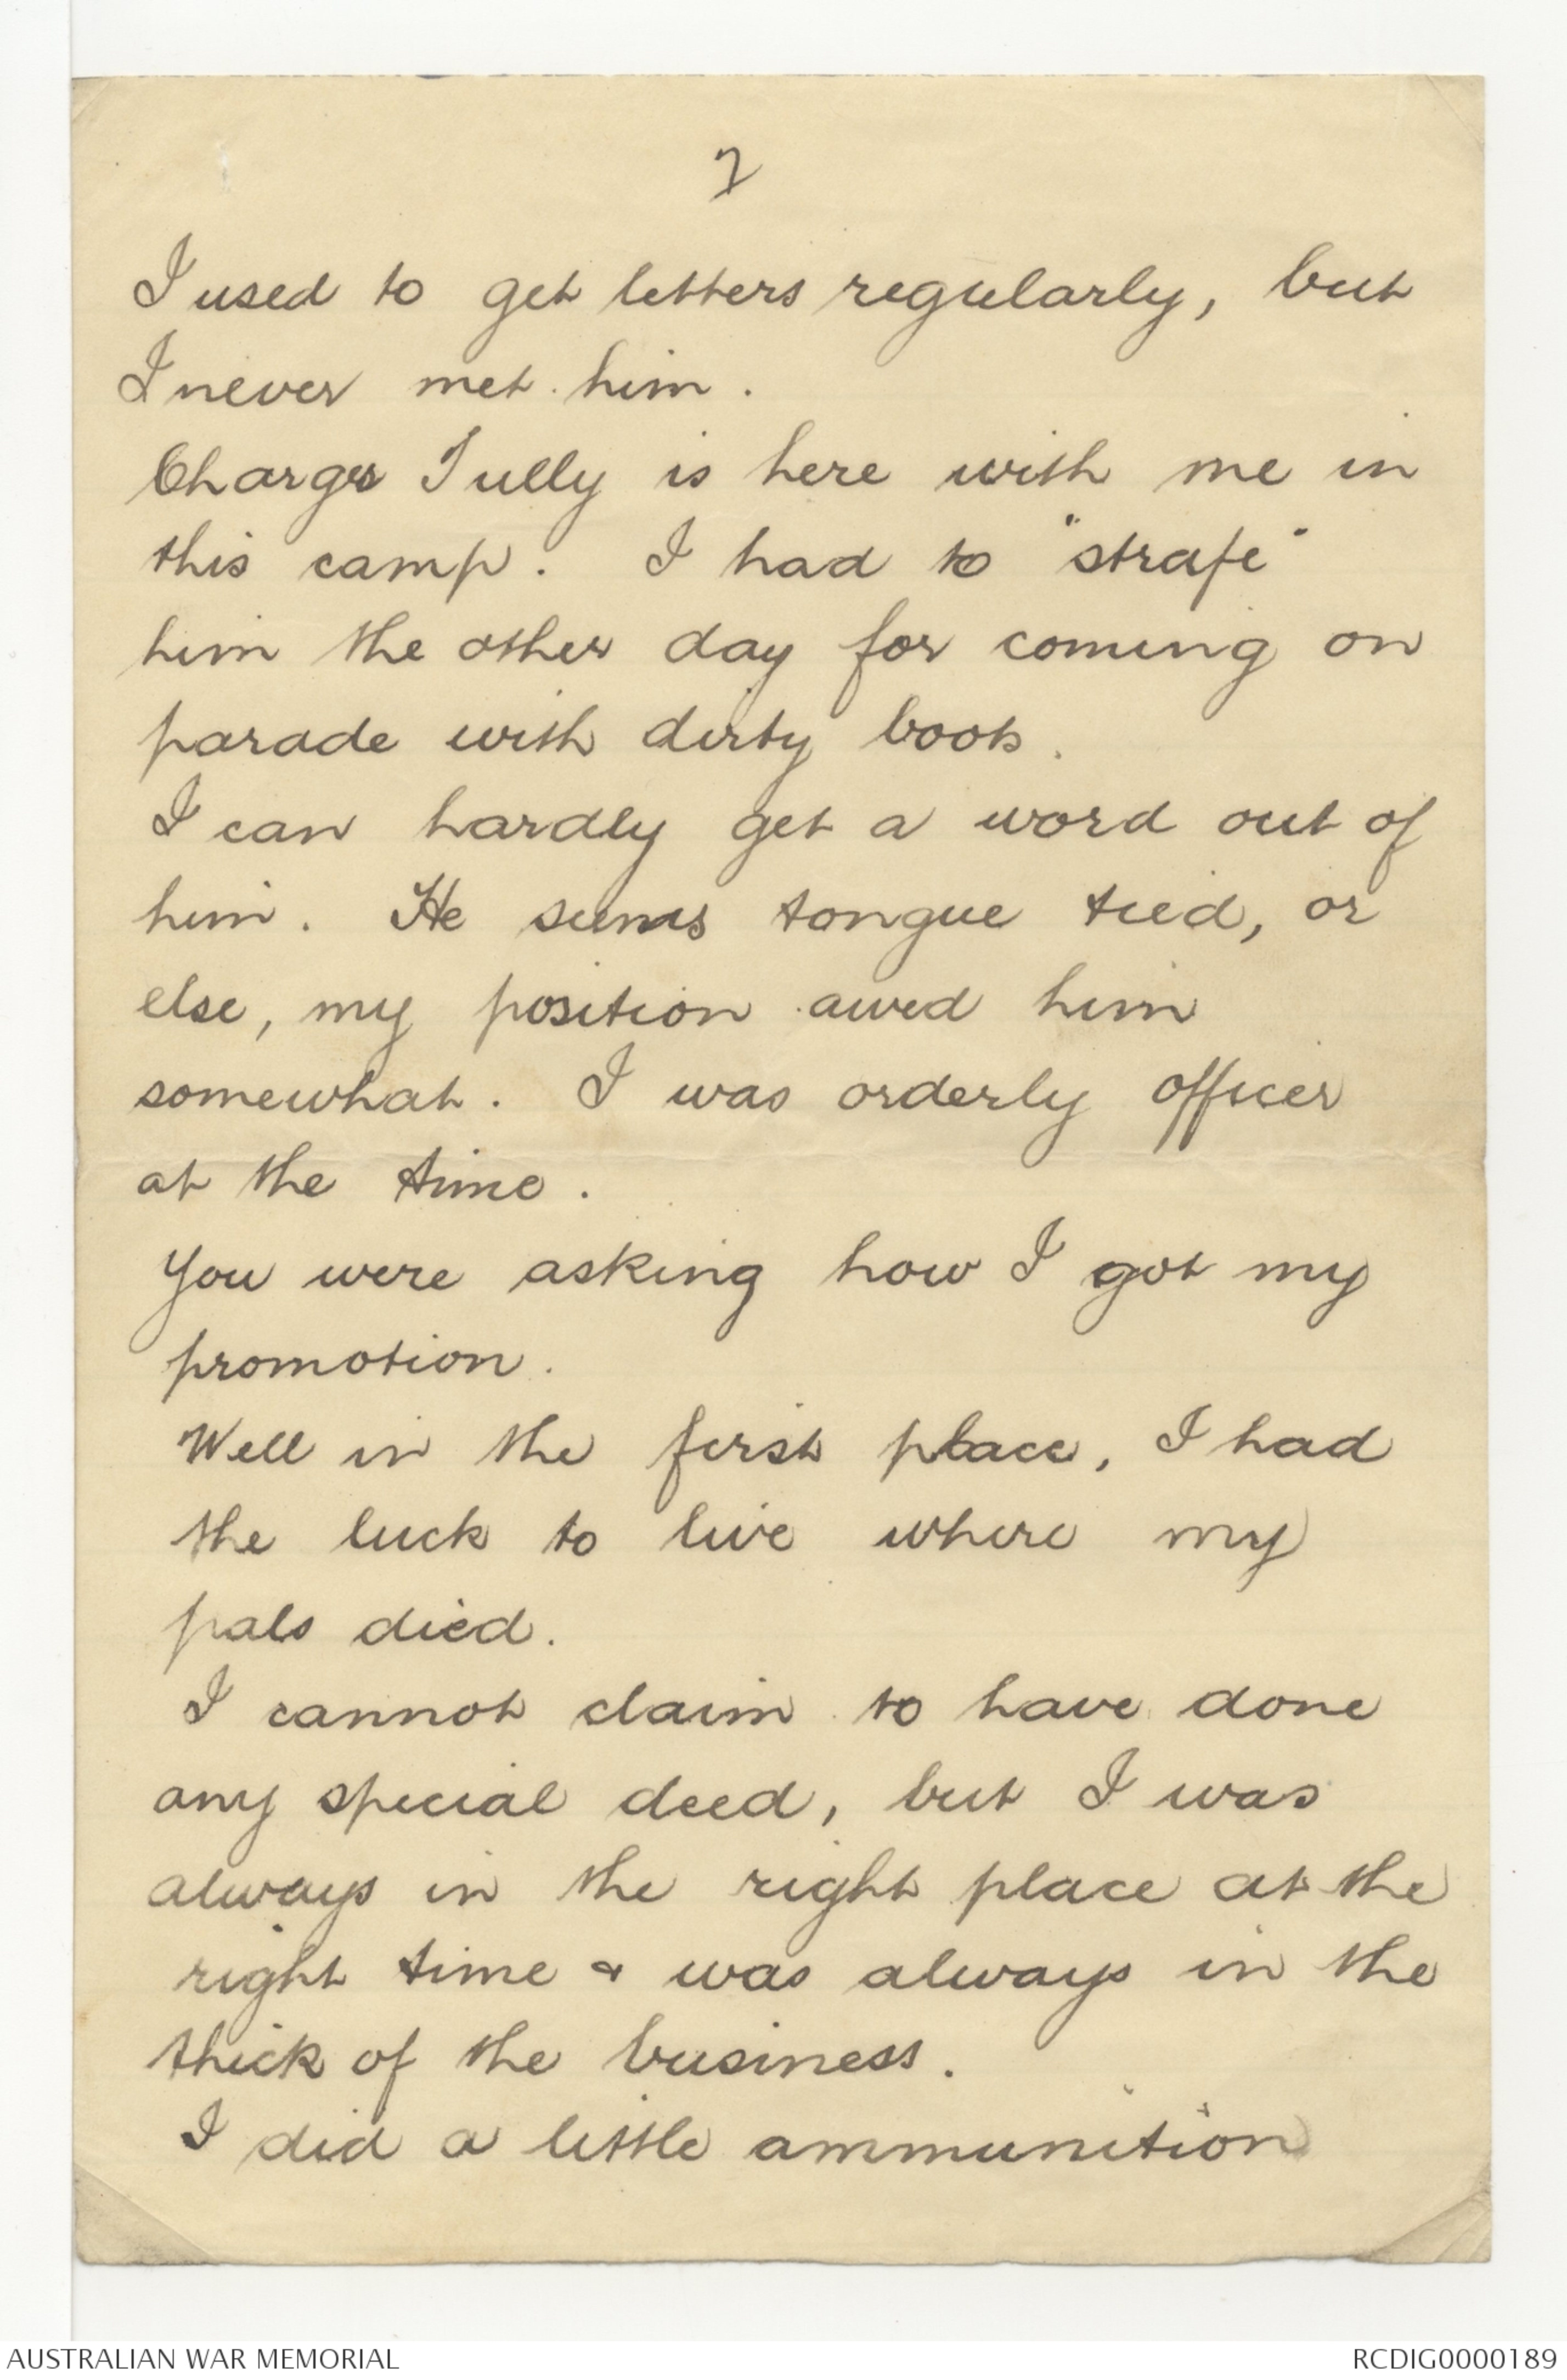 2
I used to get letters regularly, but
I never met him.
Charges Tully is here with me in
this camp. I had to "strafe"
him the other day for coming on
parade with dirty boots.
I can hardly get a word out of
him. He seems tongue tied, or
else, my position awed him
somewhat. I was orderly officer
at the time.
You were asking how I got my
promotion.
Well in the first place, I had
the luck to live where my
pals died.
I cannot claim to have done
any special deed, but I was
always in the right place at the
right time & was always in the
thick of the business.
I did a little ammunition
AUSTRALIAN WAR MEMORIAL
RCDIG0000189